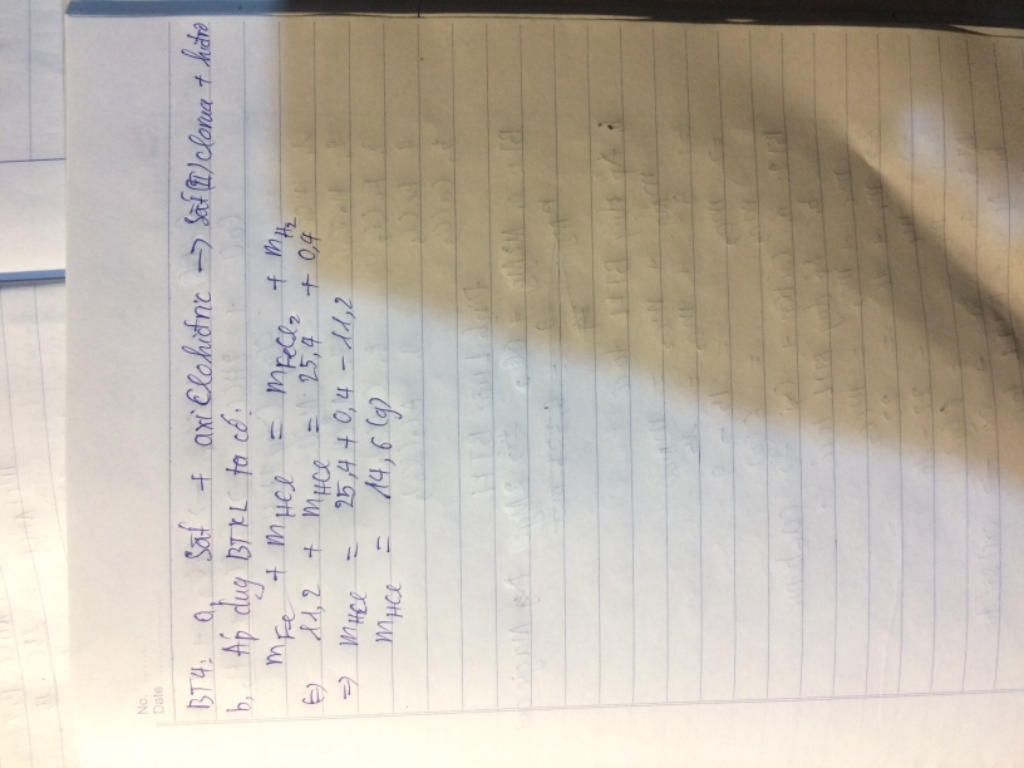 No.
Date
BT4: a, Sắt + axit Clohiđric → Sắt (II) clorua + hiđro
b, Áp dụg BTKL ta có:
mFe + mHCl = mFeCl2 + mH2
⇔ 11,2 + mHCl = 25,4 + 0,4
⇒ mHCl = 25,4 + 0,4 - 11,2
mHCl = 14,6 (g)